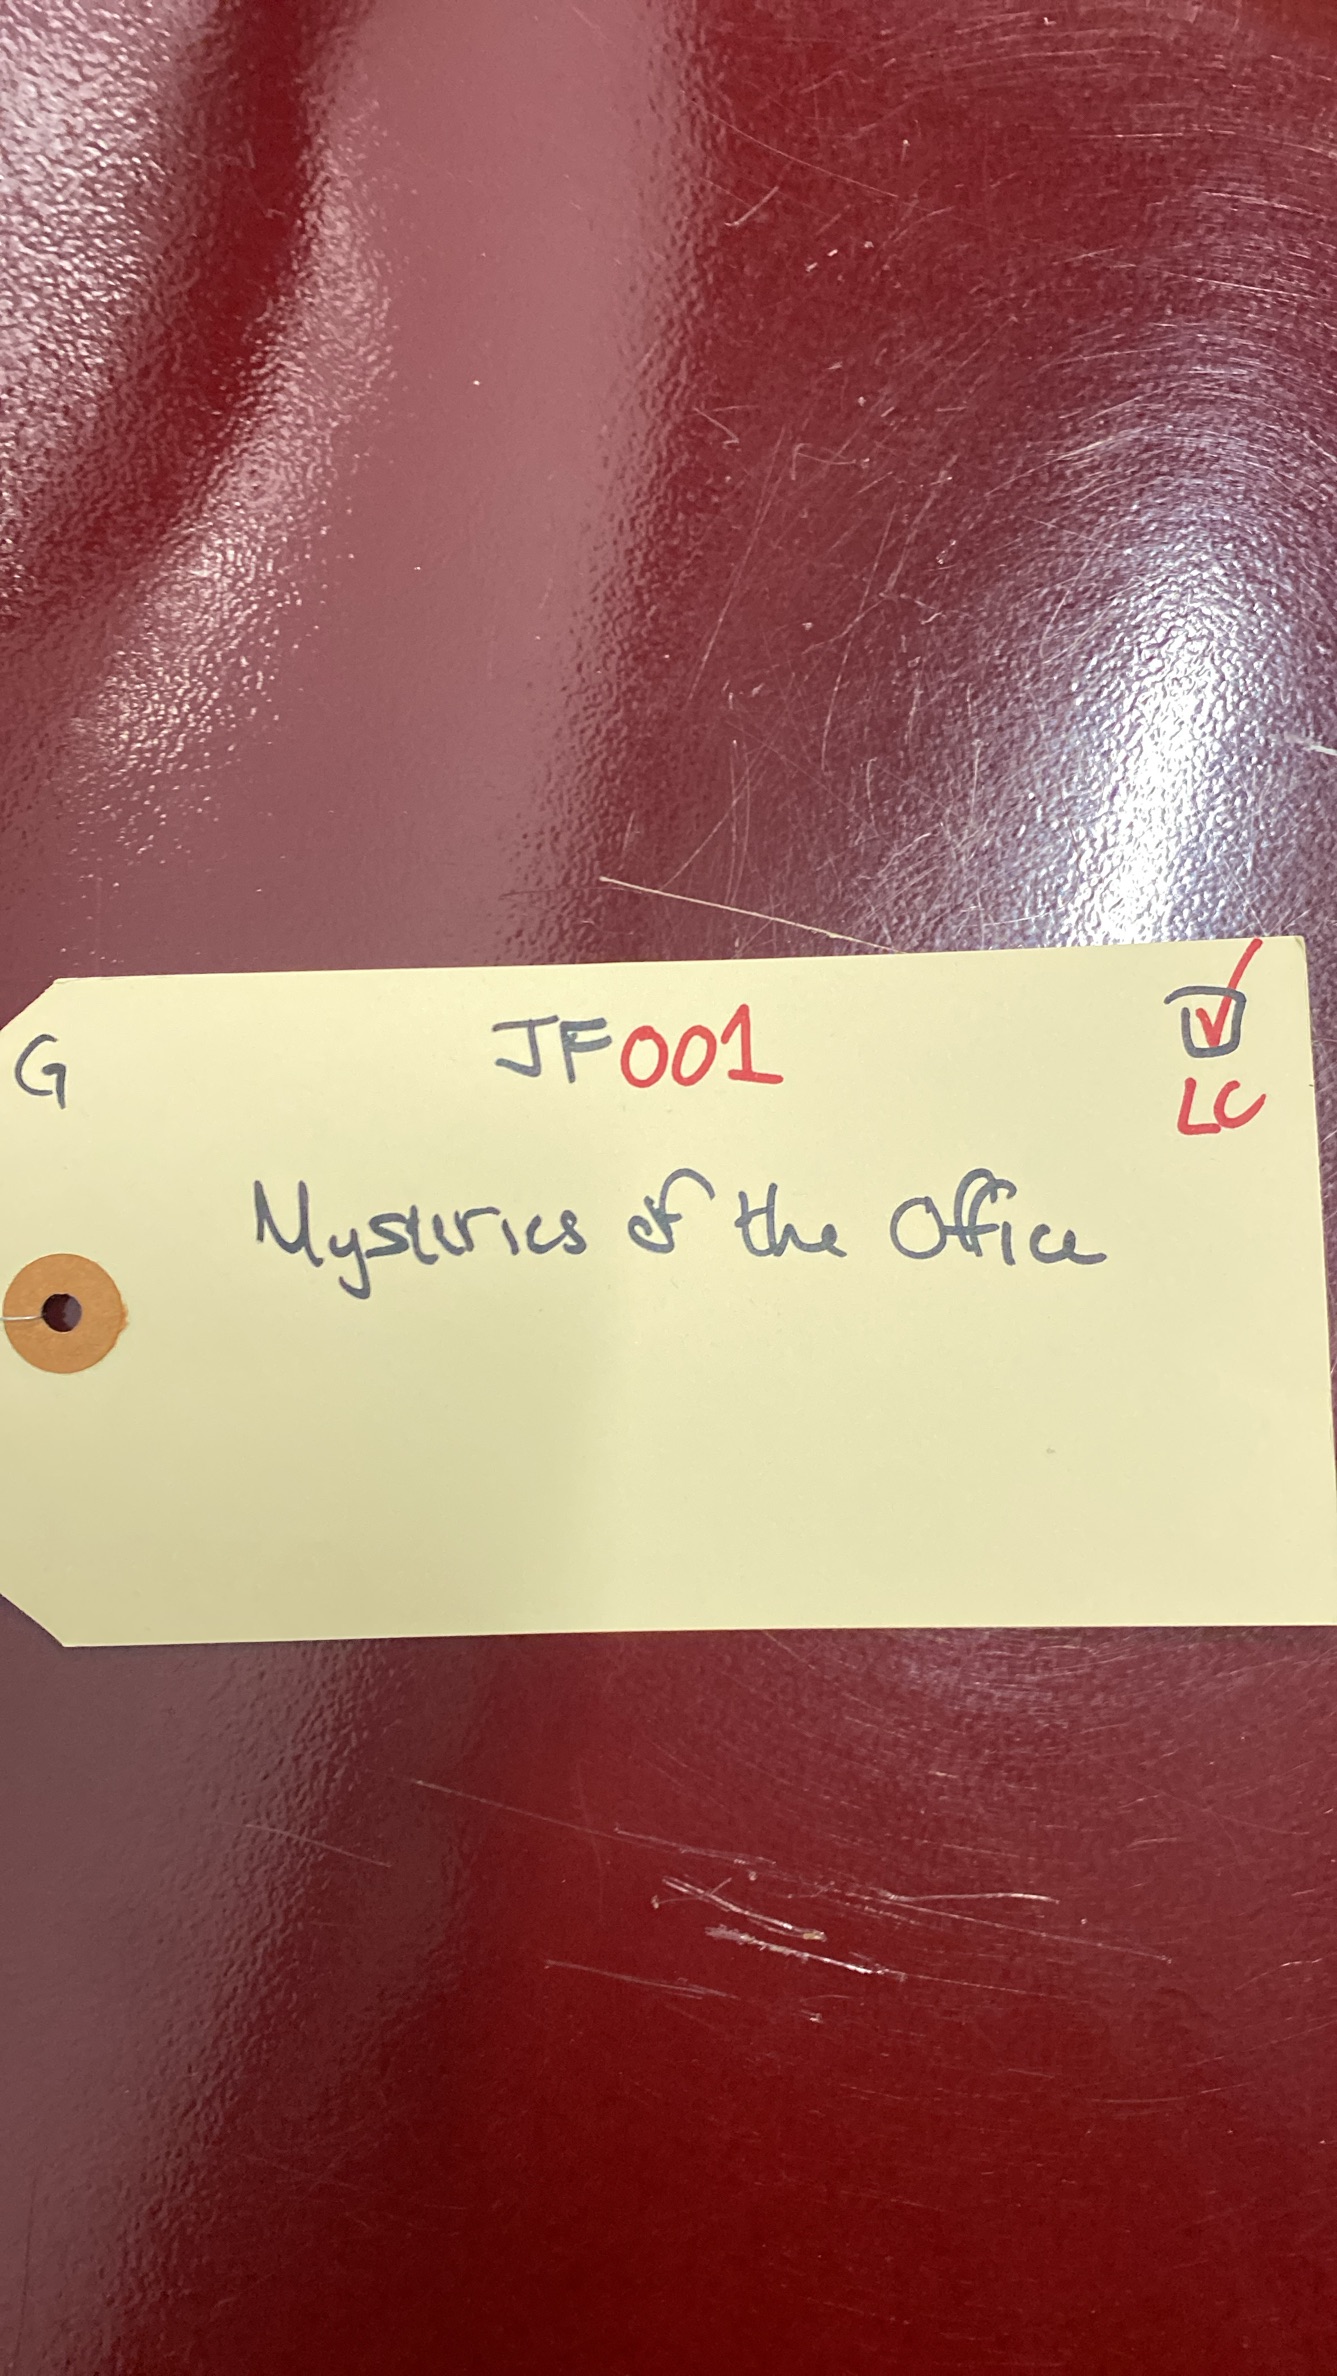 G JF001 ☑
LC
Mysteries of the Office